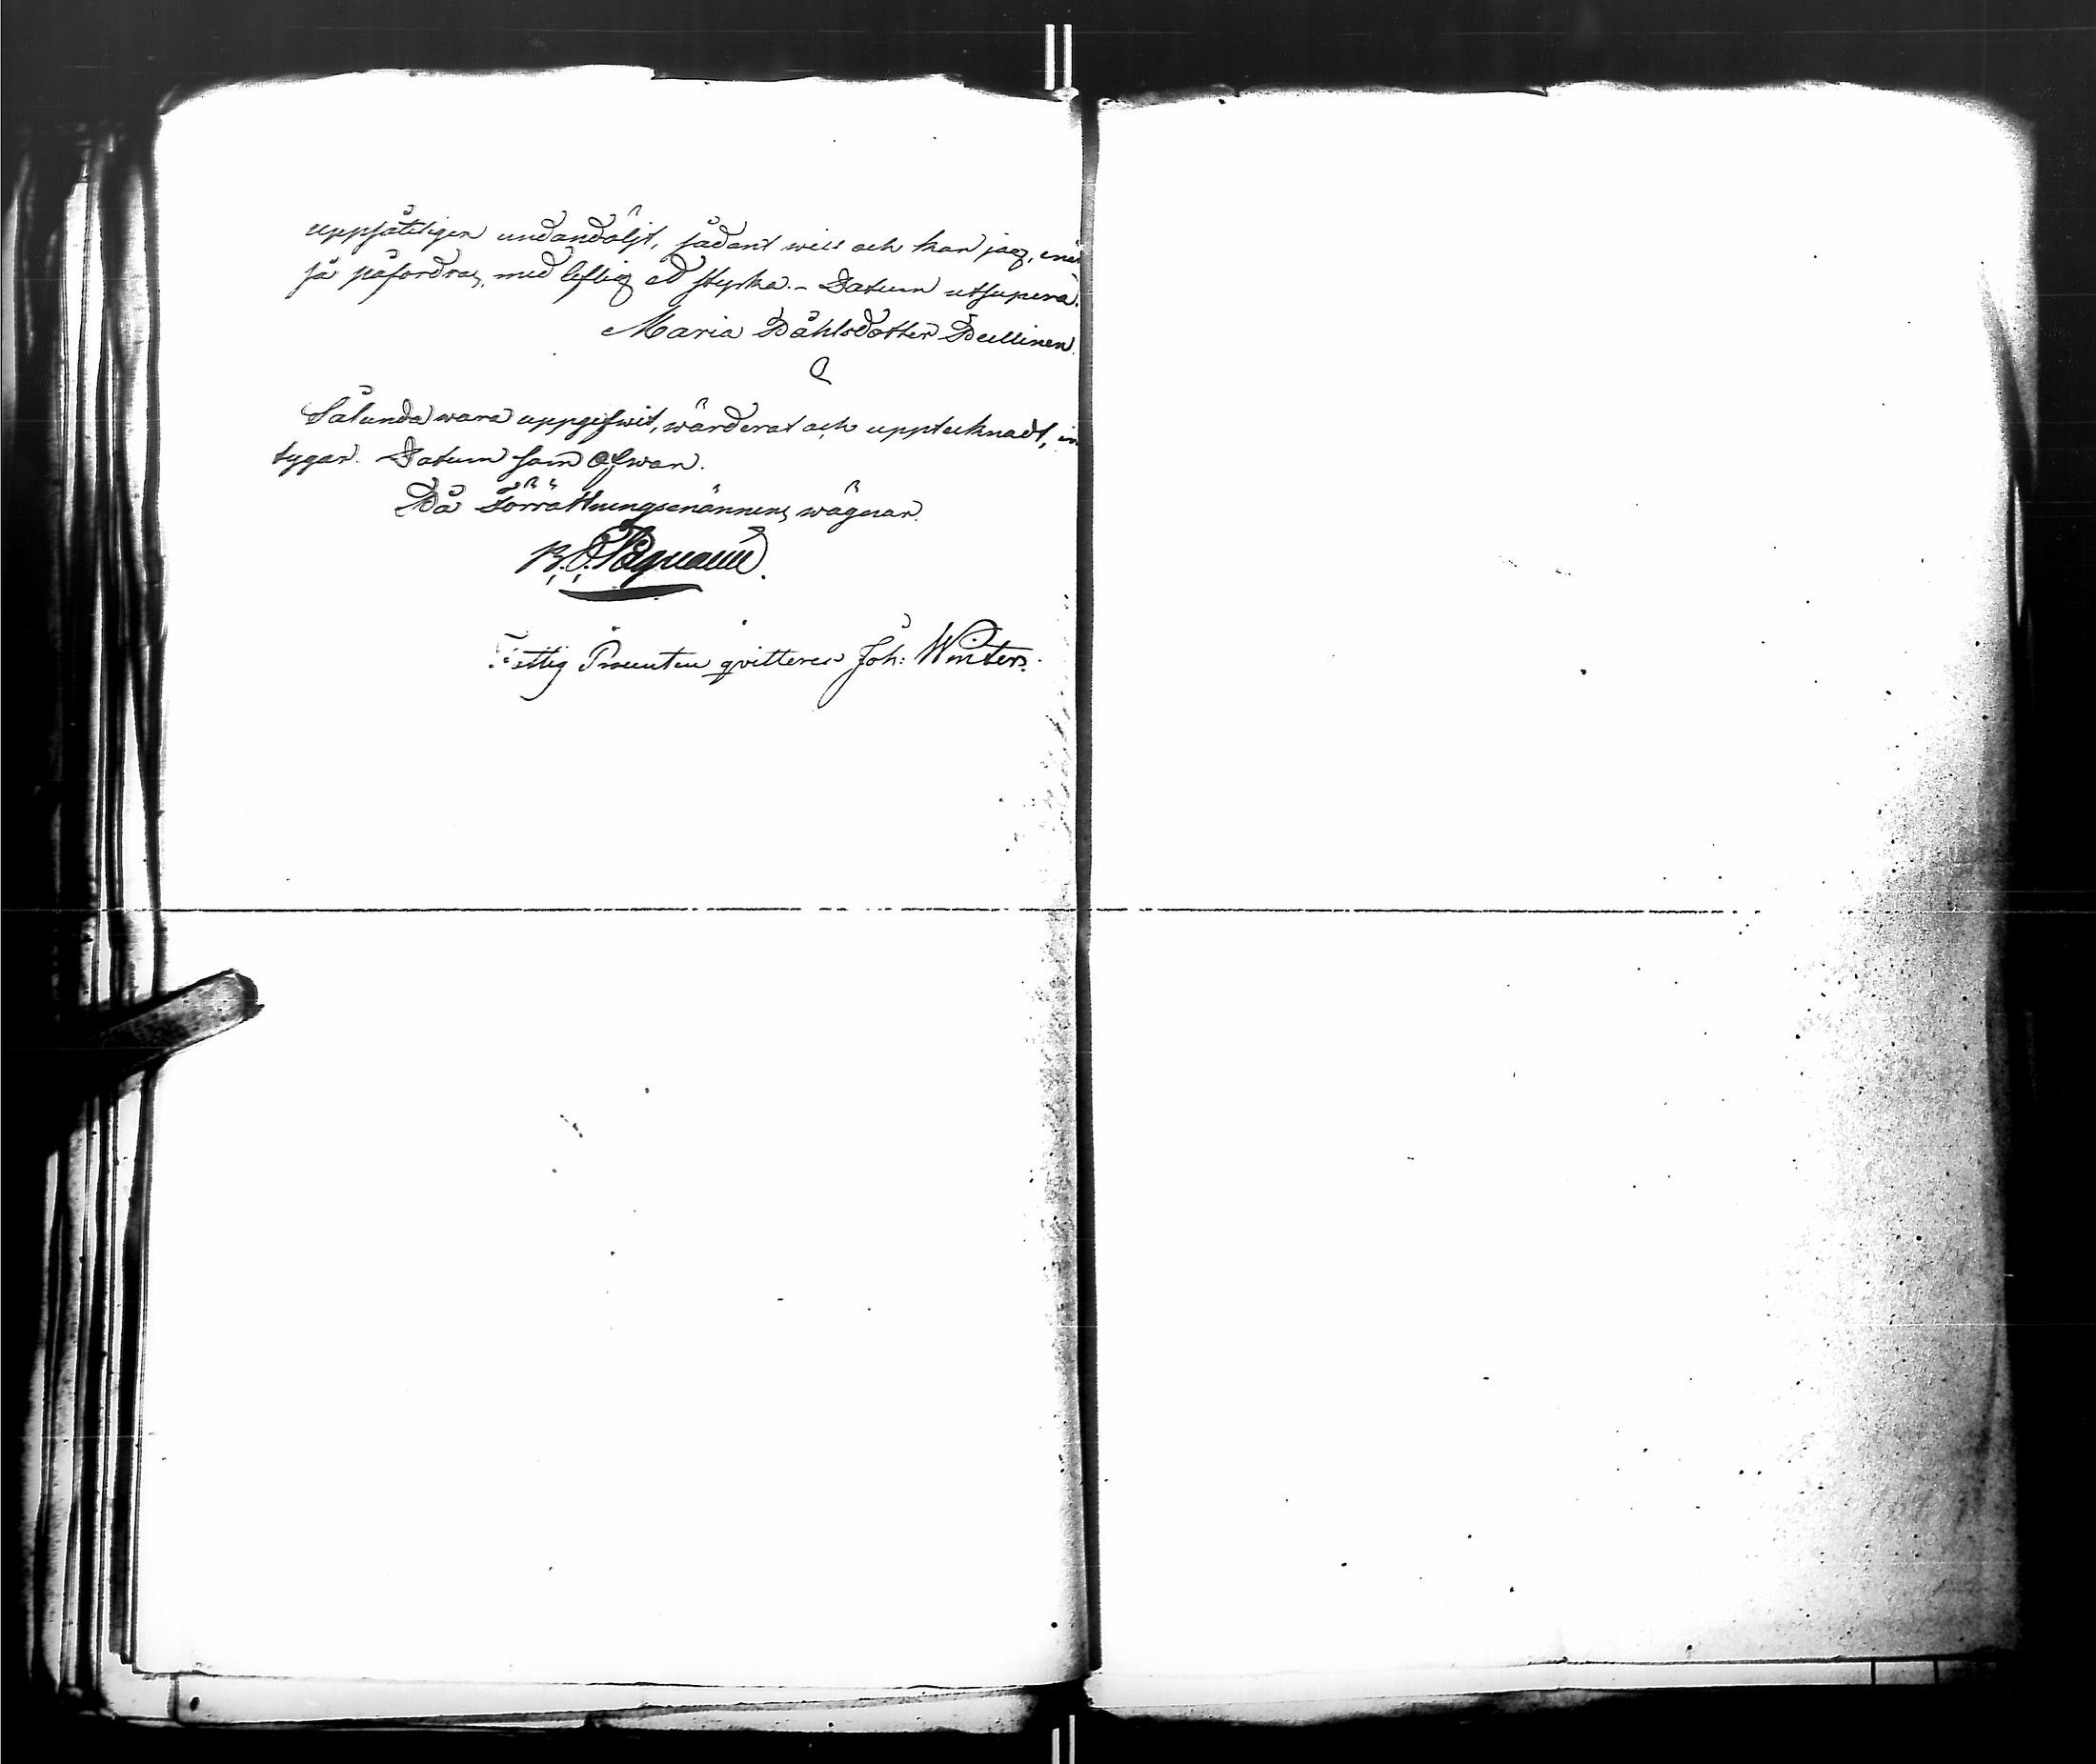 uppsåteligen undandöljt, sådant will och kan jag, enär
så påfordras, med liflig ed styrka. - Datum utsupera.
Maria Påhlsdotter Pullinen.
Sålunda wara uppgifwit, wärderat och upptecknadt, in
tygar. Datum som ofwan.
På Förrättningsmännens wägnar.
Fattig Procenten qvitteras Joh: Winter.